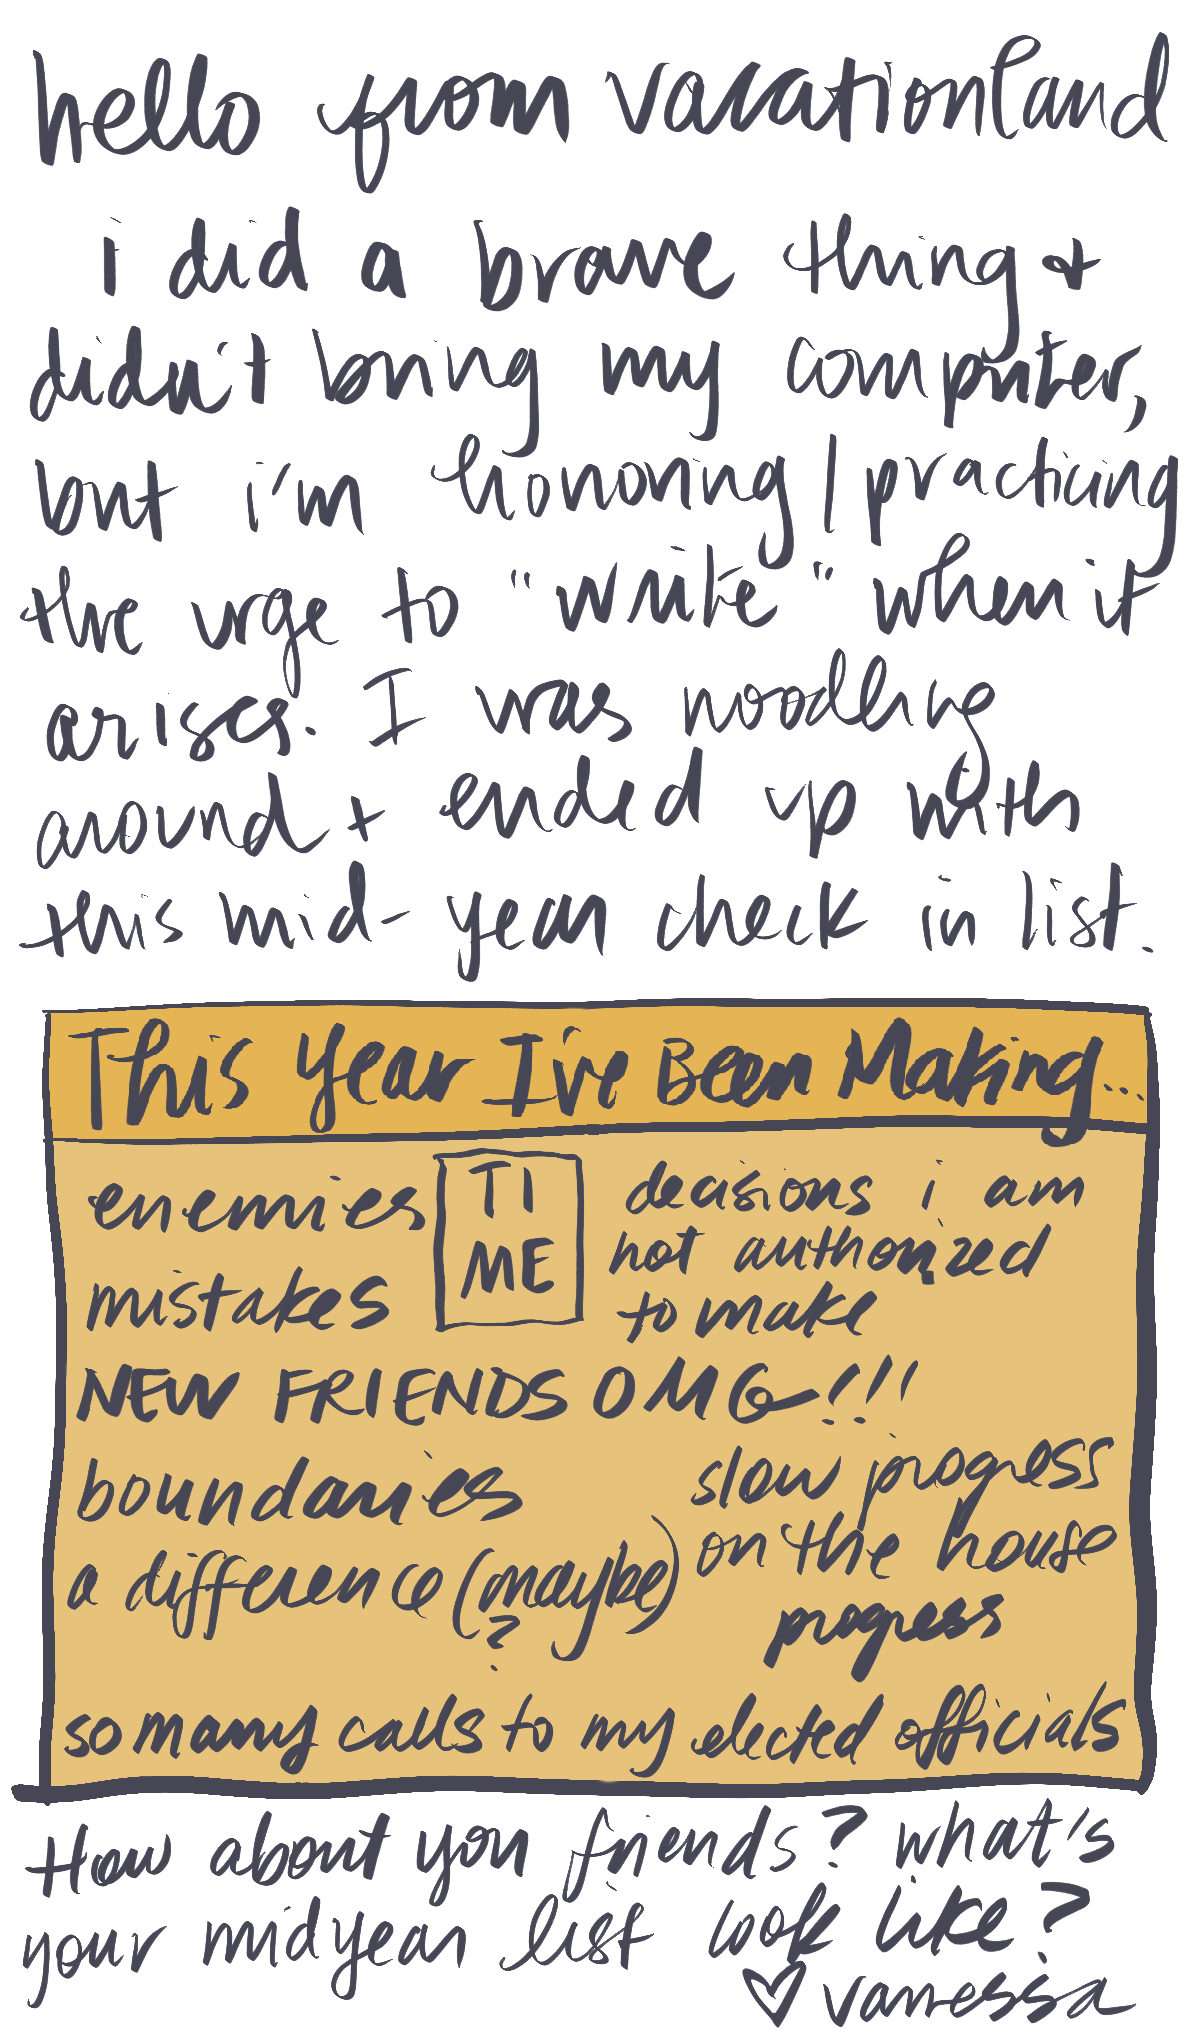 hello from vacationland
i did a brave thing +
didn't bring my computer,
but i'm honoring / practicing
the urge to "write" when it
arises. I was noodling
around + ended up with
this mid-year check in list.
This Year I've Been Making...
enemies
TI
ME
decisions i am
not authorized
to make
mistakes
NEW FRIENDS OMG!!!
boundaries
slow progress
on the house
progress
a difference (maybe)
?
so many calls to my elected officials
How about you friends? what's
your midyear list look like?
♡ vanessa